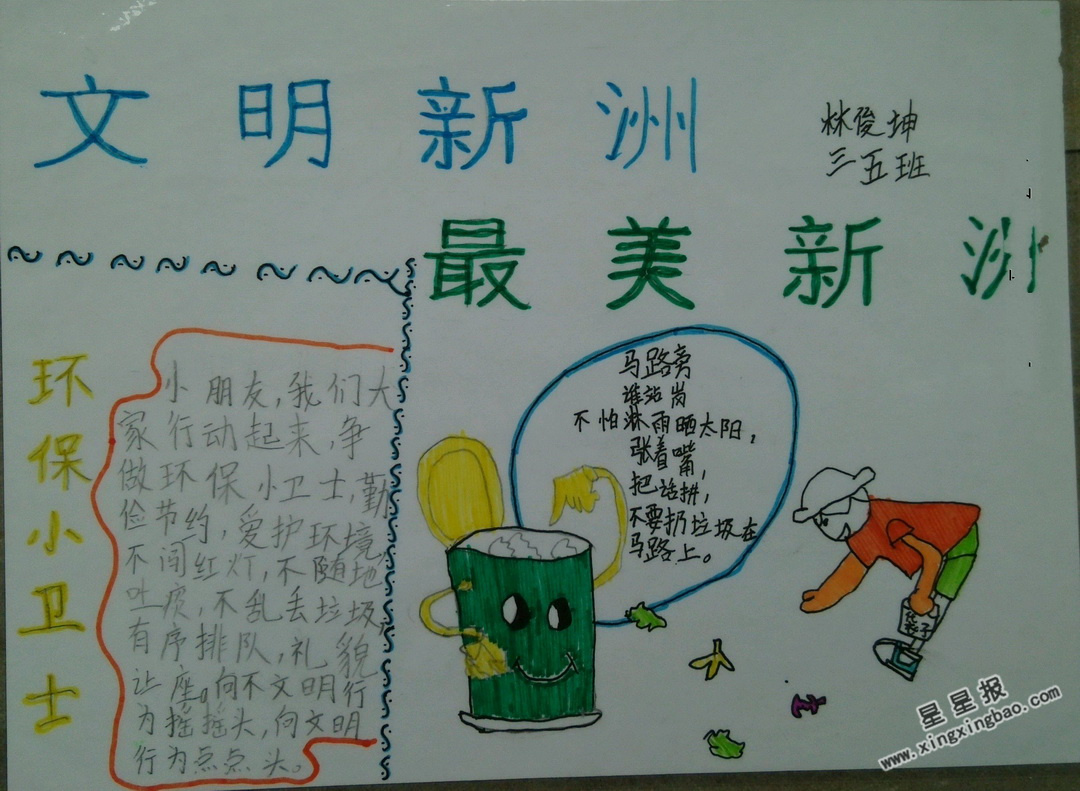 文明新洲
林俊坤
三五班
最美新洲
环保小卫士
小朋友,我们大
家行动起来,争
做环保小卫士,勤
俭节约,爱护环境,
不闯红灯,不随地
吐痰,不乱丢垃圾,
有序排队,礼貌
让座。向不文明行
为摇摇头,向文明
行为点点头。
马路旁
谁站岗
不怕淋雨晒太阳,
张着嘴,
把话讲,
不要扔垃圾在
马路上。
星星报
www.xingxingbao.com